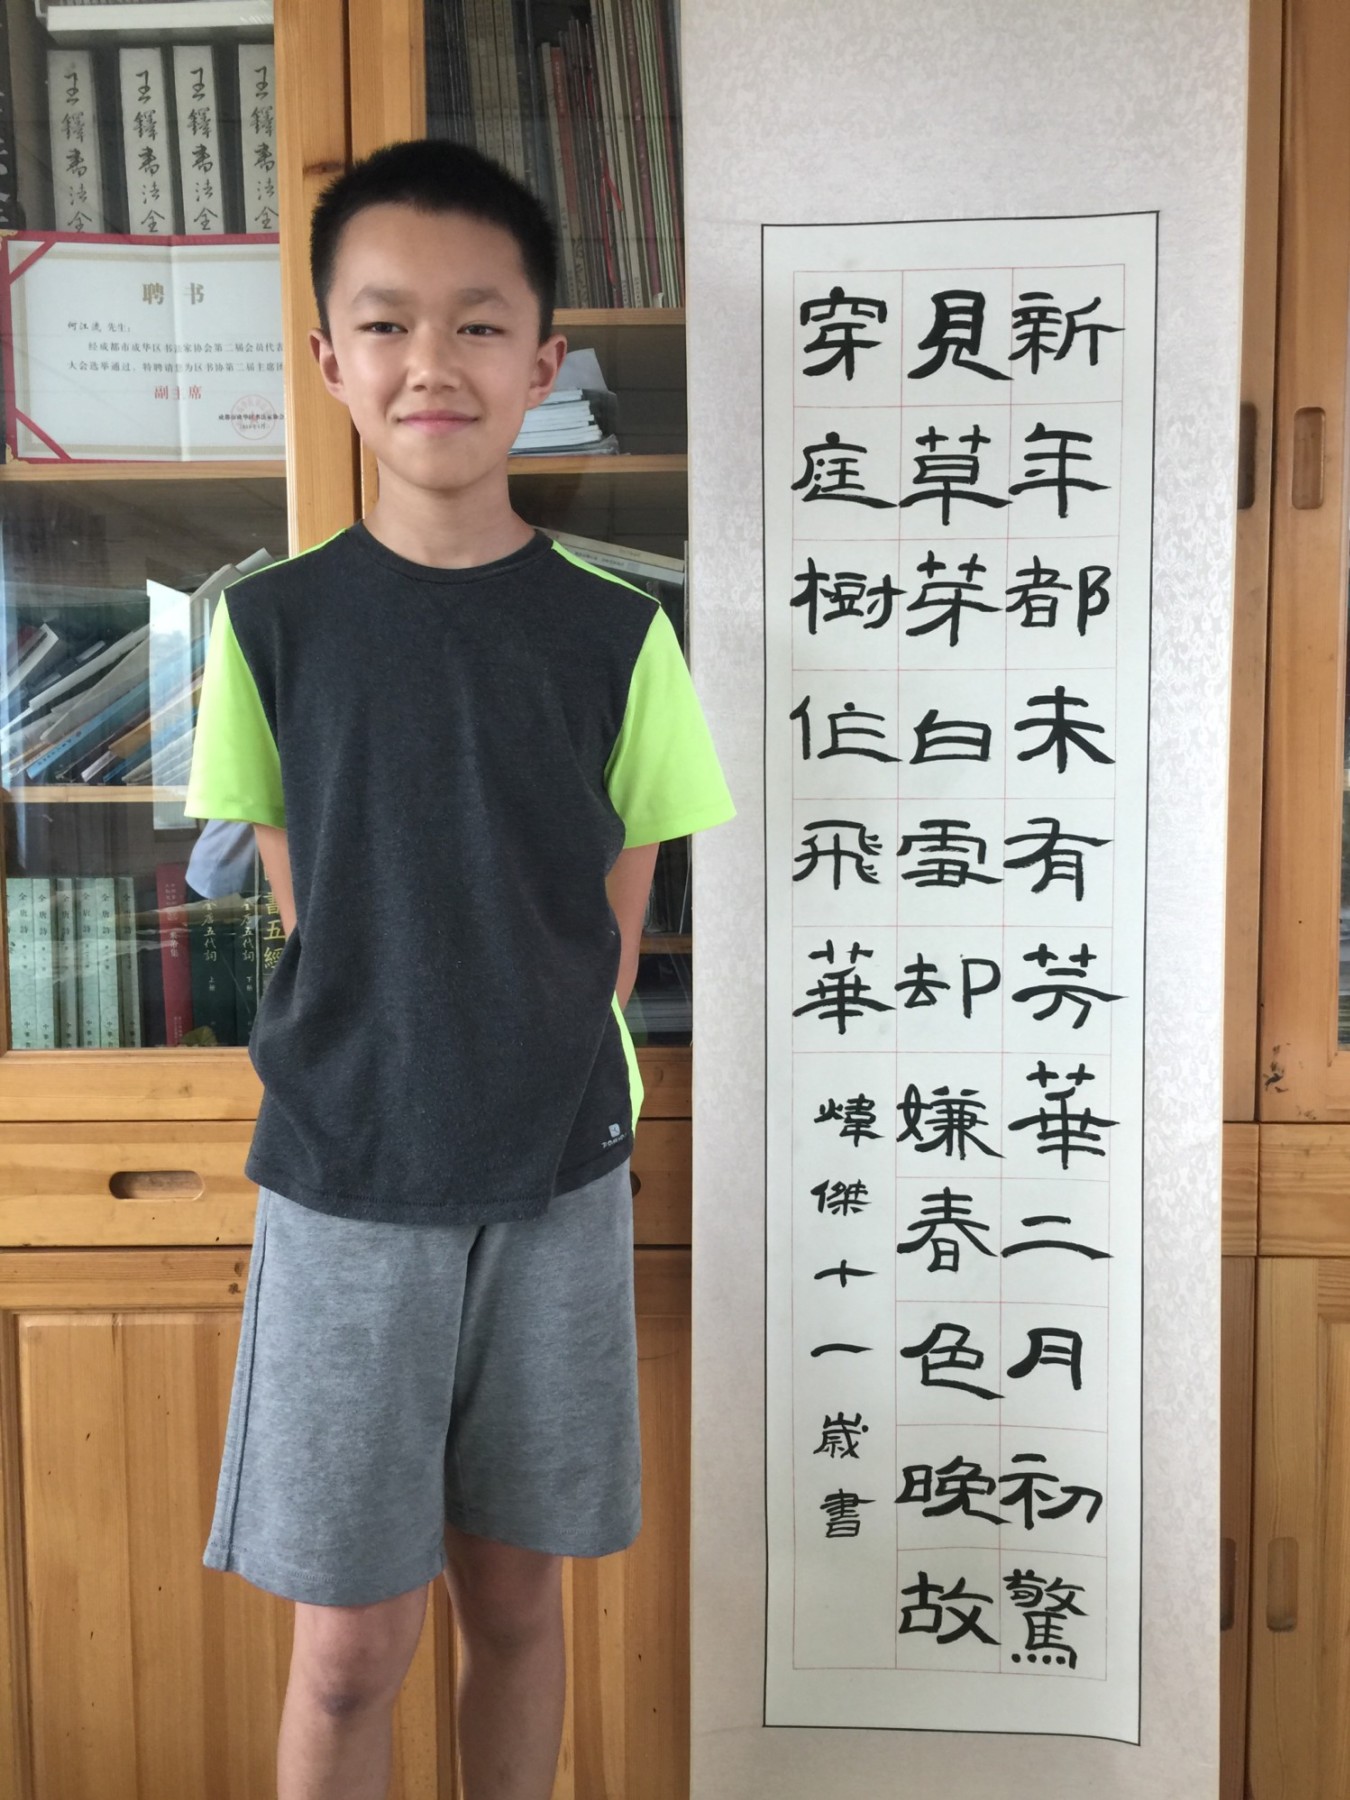 新年都未有芳華二月初驚
見草芽白雪却嫌春色晚故
穿庭樹作飛華
煒傑十一歲書
王鐸書法全
王鐸書法全
王鐸書法全
王鐸書法全
聘书
何江流 先生:
经成都市成华区书法家协会第二届会员代表
大会选举通过、特聘请您为区书协第二届主席团
副主席
全唐五代词 上册
全唐五代词 下册
書五經
全唐詩
全唐詩
全唐詩
全唐詩